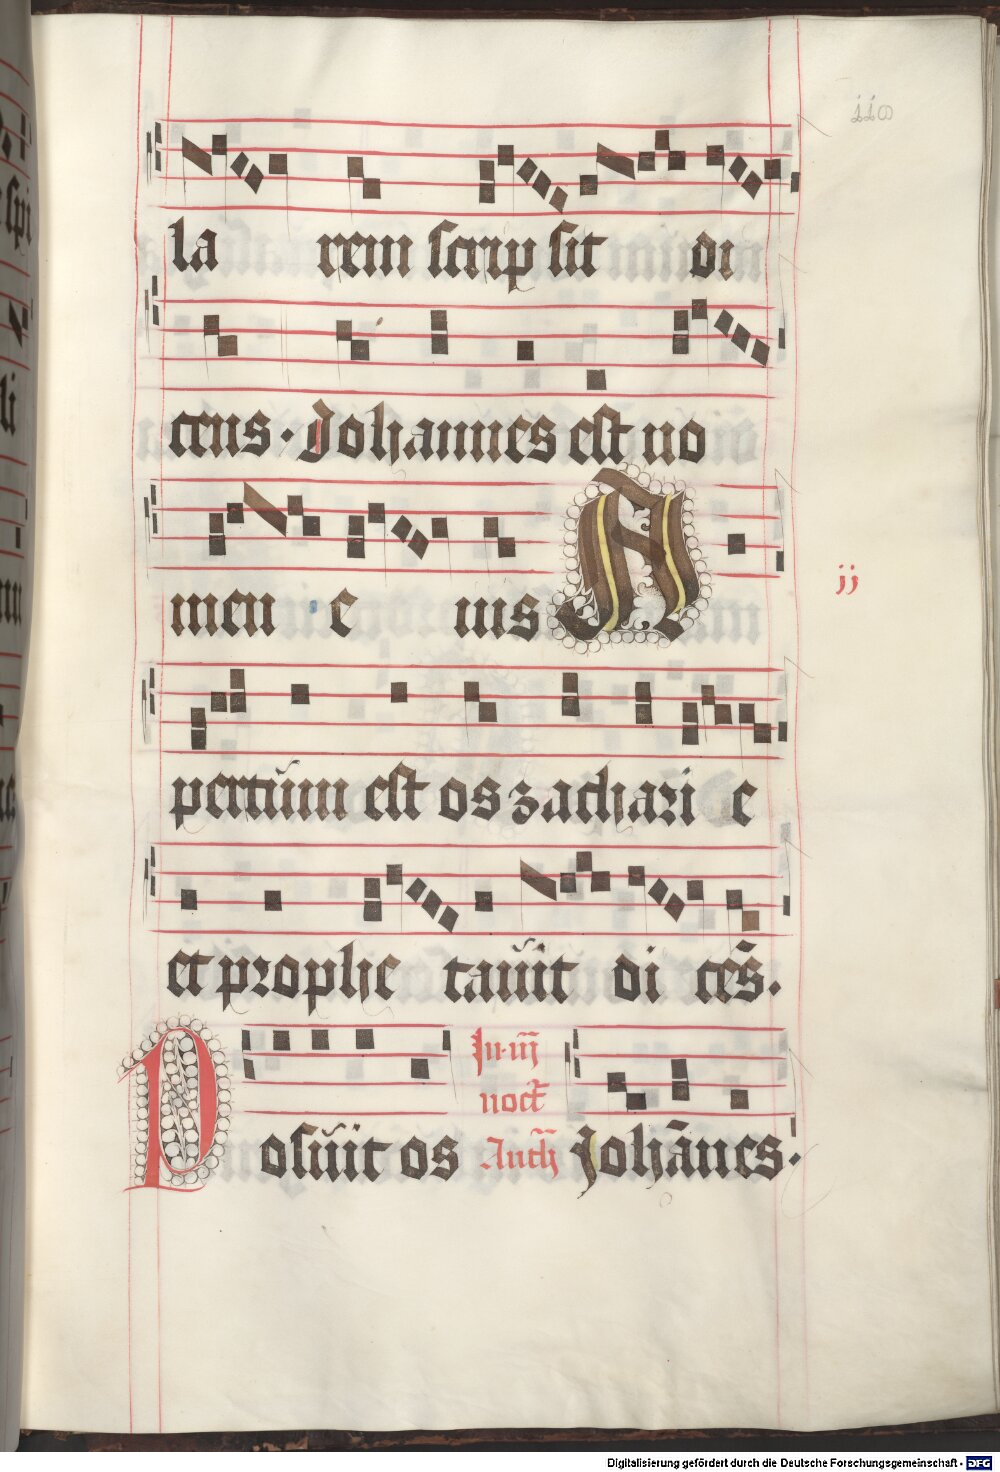 la rem scrip sit di
cens. Johannes est no
men e ius A
jj
pertum est os zachari e
et prophe tauit di cēs.
In iij
noct
P osuit os Anth Johānes.
Digitalisierung gefördert durch die Deutsche Forschungsgemeinschaft - DFG